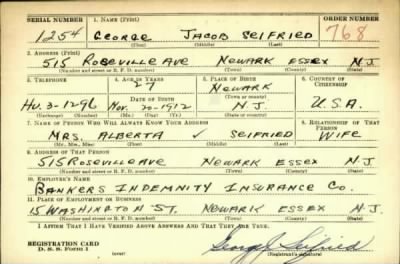 SERIAL NUMBER 1. NAME (Print) ORDER NUMBER
1254 GEORGE JACOB SEIFRIED 768
(First) (Middle) (Last)
2. ADDRESS (Print)
515 ROSEVILLE AVE NEWARK ESSEX N.J.
(Number and street or R. F. D. number) (Town) (County) (State)
3. TELEPHONE 4. AGE IN YEARS 5. PLACE OF BIRTH 6. COUNTRY OF CITIZENSHIP
27 NEWARK
HU. 3-1296 DATE OF BIRTH (Town or county)
NOV. 20-1912 N.J. U.S.A.
(Exchange) (Number) (Mo.) (Day) (Yr.) (State or country)
7. NAME OF PERSON WHO WILL ALWAYS KNOW YOUR ADDRESS 8. RELATIONSHIP OF THAT PERSON
MRS. ALBERTA ✓ SEIFRIED WIFE
(Mr., Mrs., Miss) (First) (Middle) (Last)
9. ADDRESS OF THAT PERSON
515 ROSEVILLE AVE NEWARK ESSEX N.J
(Number and street or R. F. D. number) (Town) (County) (State)
10. EMPLOYER'S NAME
BANKERS INDEMNITY INSURANCE CO.
11. PLACE OF EMPLOYMENT OR BUSINESS
15 WASHINGTON ST. NEWARK ESSEX N.J.
(Number and street or R. F. D. number) (Town) (County) (State)
I AFFIRM THAT I HAVE VERIFIED ABOVE ANSWERS AND THAT THEY ARE TRUE.
REGISTRATION CARD George J. Seifried
D. S. S. Form 1 (over) (Registrant's signature)